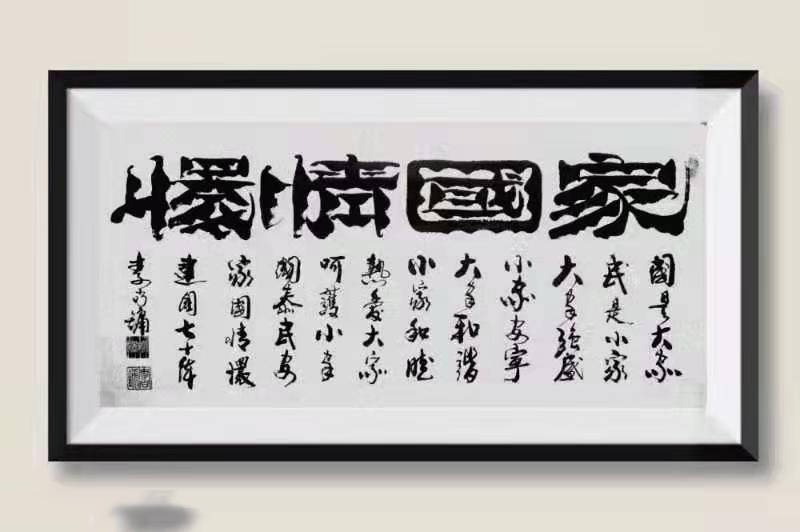 家國情懷
國是大家
民是小家
大家強盛
小家安寧
大家和諧
小家和睦
熱愛大家
呵護小家
國泰民安
家國情懷
建国七十年
李